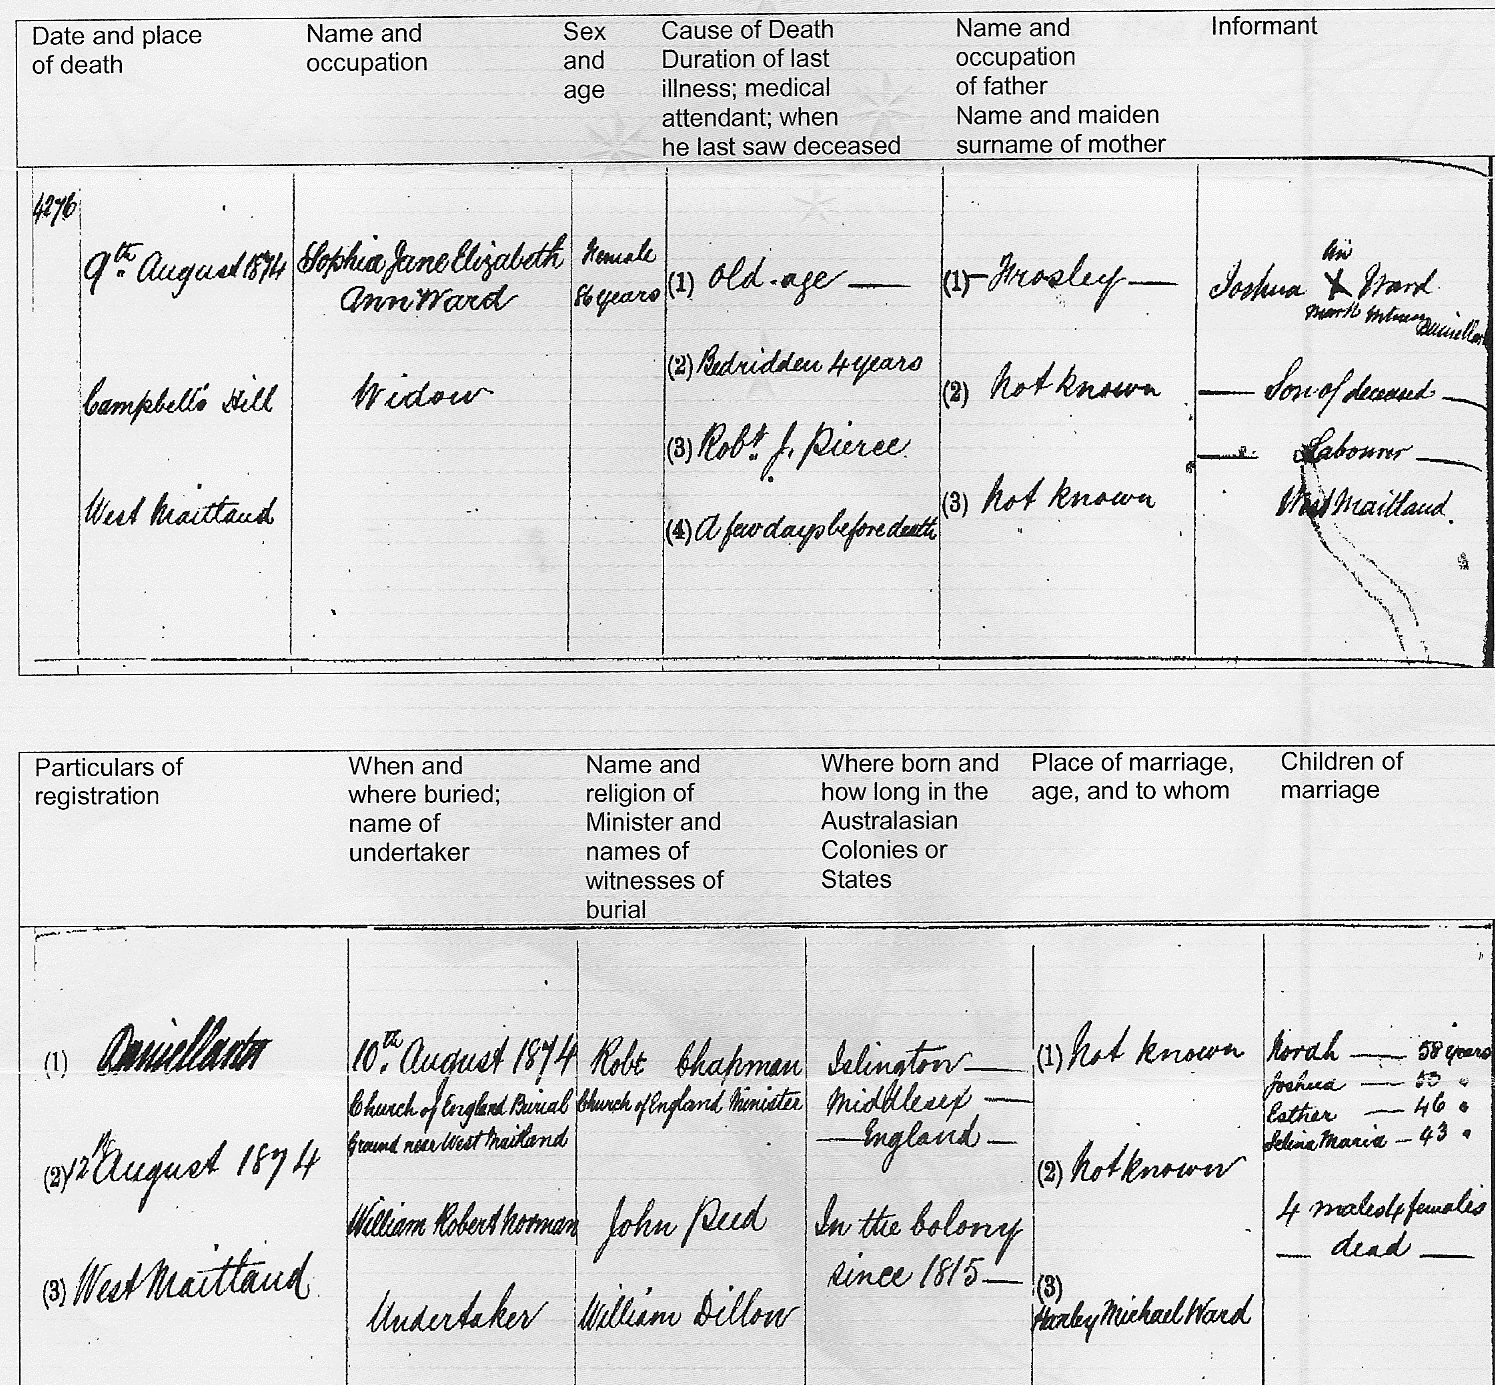 Date and place
of death
Name and
occupation
Sex
and
age
Cause of Death
Duration of last
illness; medical
attendant; when
he last saw deceased
Name and
occupation
of father
Name and maiden
surname of mother
Informant
4276
9th August 1874
Campbell's Hill
West Maitland
Sophia Jane Elizabeth
Ann Ward
Widow
Female
86 years
(1) Old-age —
(2) Bedridden 4 years
(3) Robt. J. Pierce
(4) A few days before death
(1) — Frosley —
(2) Not known
(3) Not known
Joshua X Ward
mark
— Son of deceased —
— Labourer —
West Maitland.
Particulars of
registration
When and
where buried;
name of
undertaker
Name and
religion of
Minister and
names of
witnesses of
burial
Where born and
how long in the
Australasian
Colonies or
States
Place of marriage,
age, and to whom
Children of
marriage
(1)
(2) 12th August 1874
(3) West Maitland
10th. August 1874
Church of England Burial
Ground near West Maitland
William Robert Norman
Undertaker
Robt Chapman
Church of England Minister
John Reed
William Dillow
Islington —
Middlesex —
— England —
In the Colony
since 1815 —
(1) Not known
(2) Not known
(3)
Michael Ward
Norah — 58 years
Joshua — 53 "
Esther — 46 "
Selina Maria — 43 "
4 males 4 females
— dead —